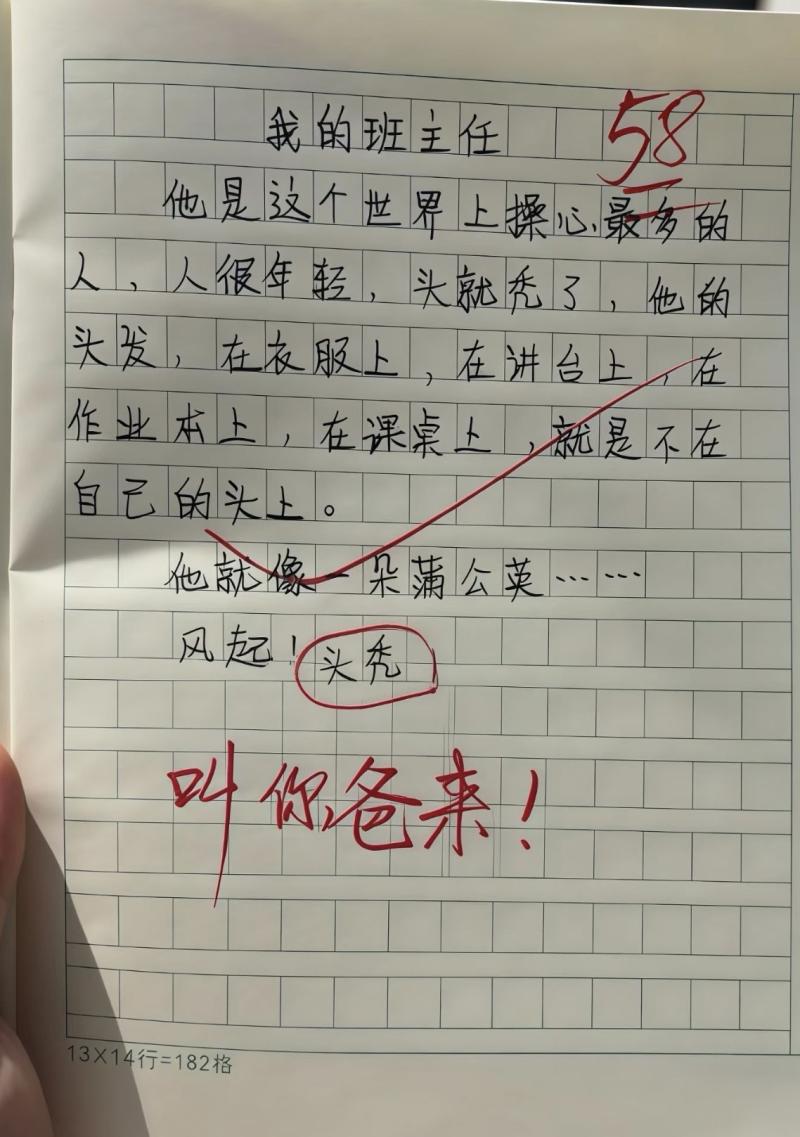 我的班主任
58
他是这个世界上操心最多的
人，人很年轻，头就秃了，他的
头发，在衣服上，在讲台上，在
作业本上，在课桌上，就是不在
自己的头上。
他就像一朵蒲公英……
风起！头秃
叫你爸来！
13×14行=182格